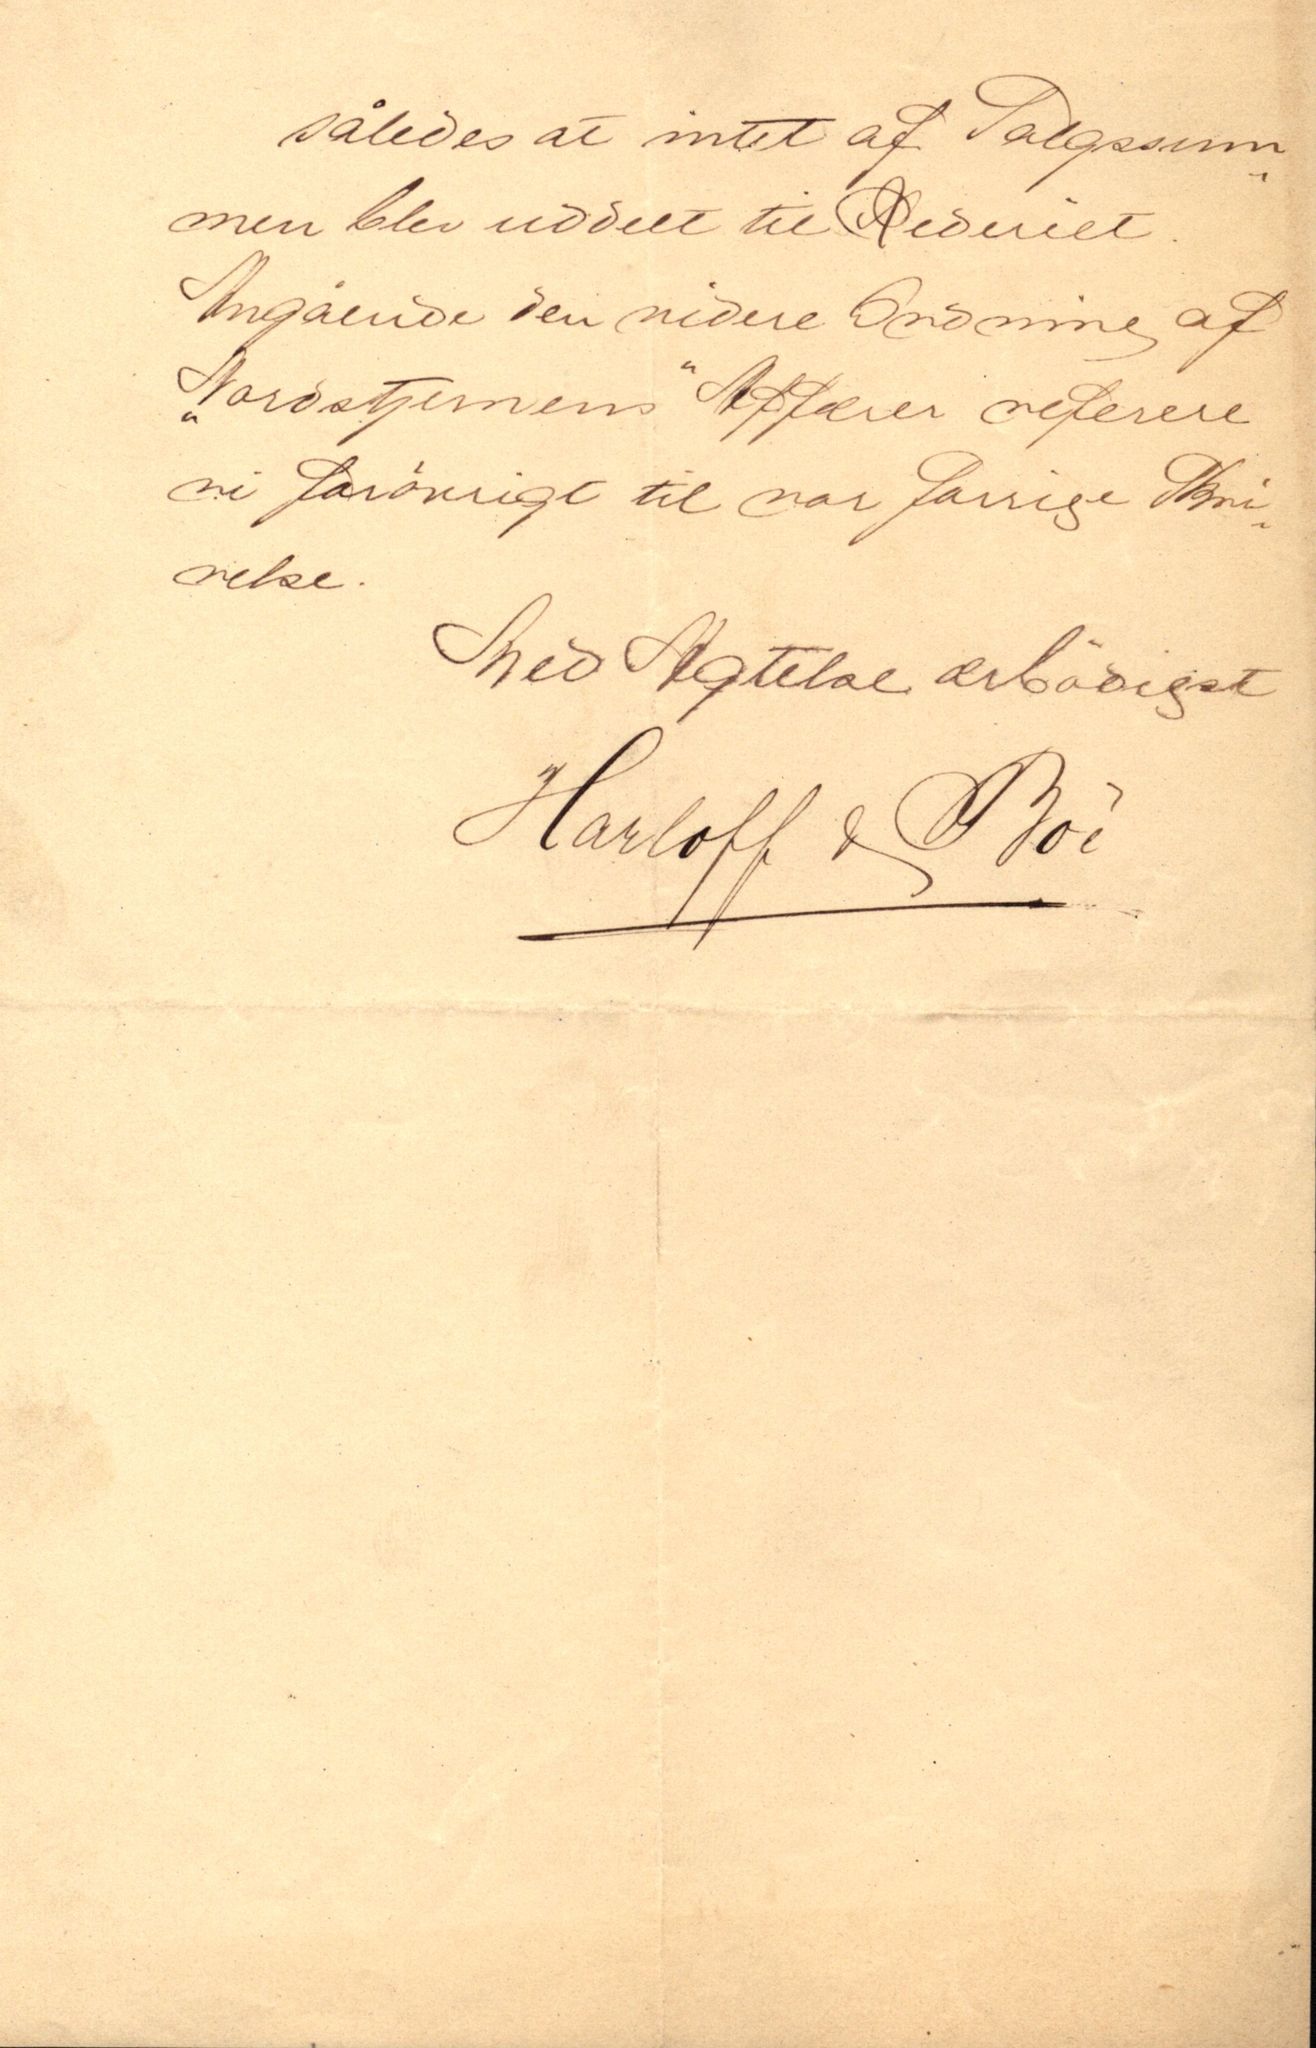 således at intet af Salgssum„
men blev uddelt til Rederiet.
Angående den videre Ordning af
„Nordstjernens“ Affærer referere
vi forövrigt til vor forrige Skri„
velse.
Med Agtelse ærbödigst
Harloff & Böe